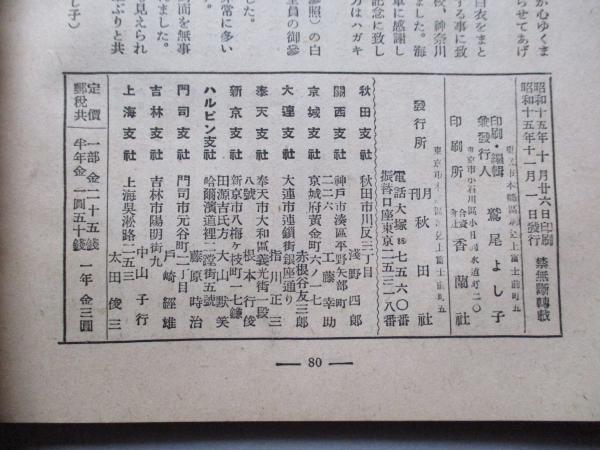 が心ゆくま
らせてあげ
白衣をまと
する事に致
校、神奈川
ました。海
軍に感謝し
記念に致し
力はハガキ
參照）の白
員の御參
した。
常に多い
。
面を無事
ました。
見えられ
ぶりと共
し子）
昭和十五年十月廿六日印刷
昭和十五年十一月一日發行
禁無斷轉載
上富士前町五
印刷・編輯
兼發行人
鷲尾よし子
東京市小石川區小日向水道町二〇
印刷所
合資會社
香蘭社
上富士前町五
發行所
月刊
秋田社
電話大塚
七五六〇番
振替口座東京二五三二八番
秋田支社
秋田市川反三丁目
淺野四郎
關西支社
神戸市湊區平野矢部町
二二六
工藤幸助
京城支社
京城府黃金町六ノ一七
赤根谷友三郎
大連支社
大連市連鎖街銀座通り
指川正三
奉天支社
奉天市大和區義光街一段
八號
根本行俊
新京支社
新京市八梅ヶ枝町一七鎌
田源吉氏方
大山默笑
ハルビン支社
哈爾濱道裡二蹚街五號
藤原時治
門司支社
門司市元谷町二丁目
戸崎經雄
吉林支社
吉林市陽明街九
中山子行
上海支社
上海吳淞路二五三
太田俊三
定價
郵税共
一部金二十五錢
半年金一圓五十錢
一年金三圓
— 80 —